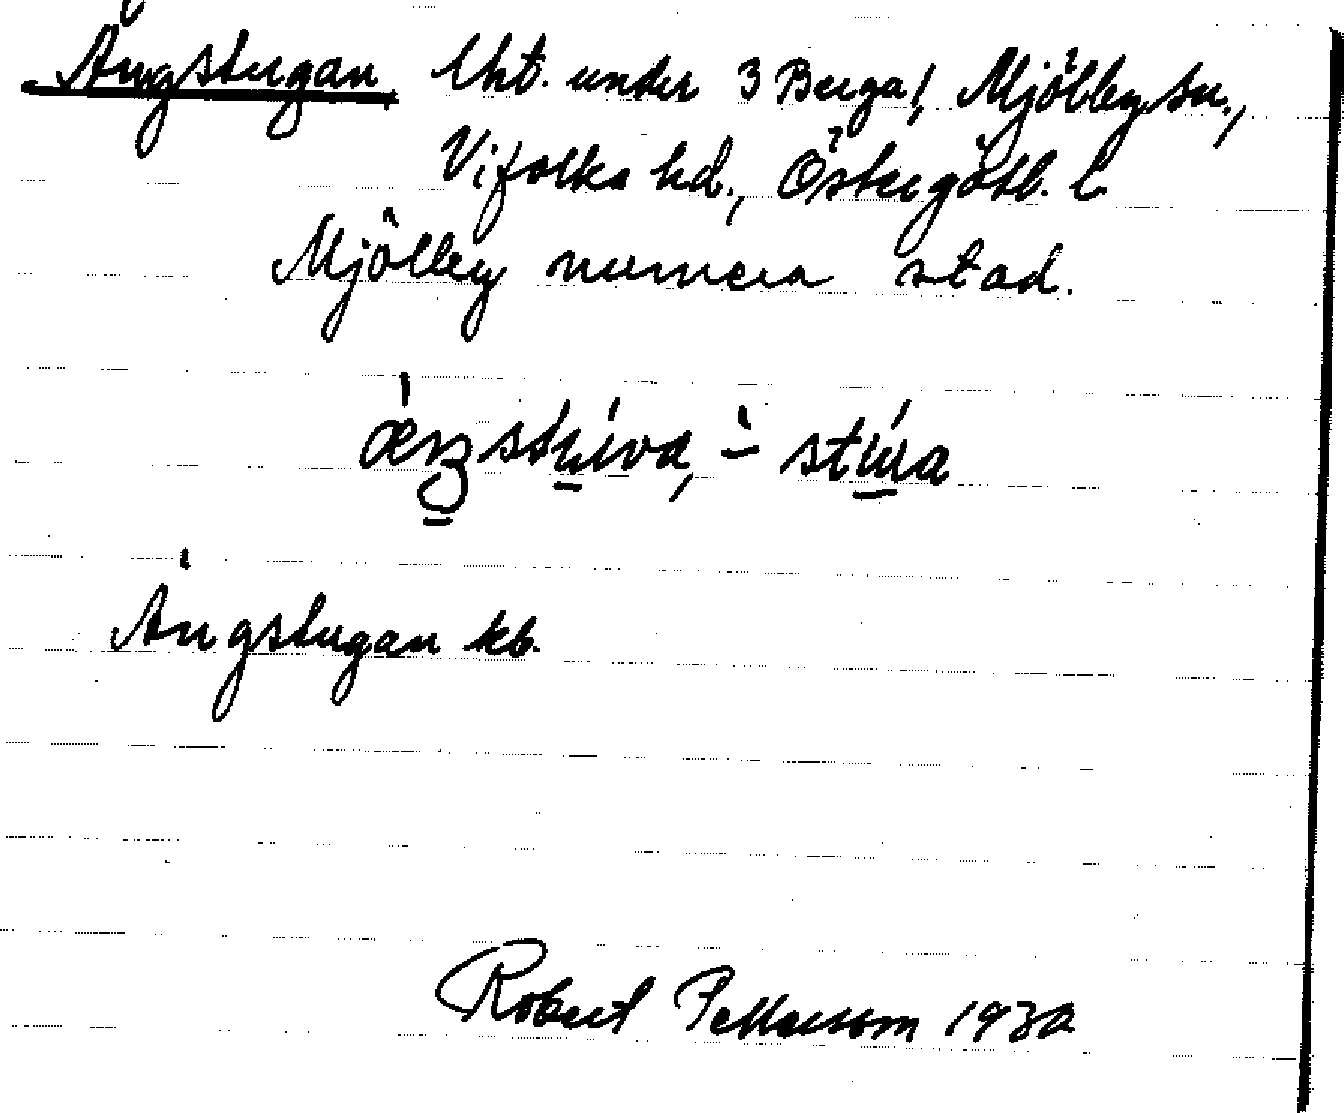 Ängstugan lht. under 3 Berga!, Mjölby sn.,
Vifolka hd., Östergötl. l.
Mjölby numera stad.
Ängstugan kb.
Robert Pettersson 1930